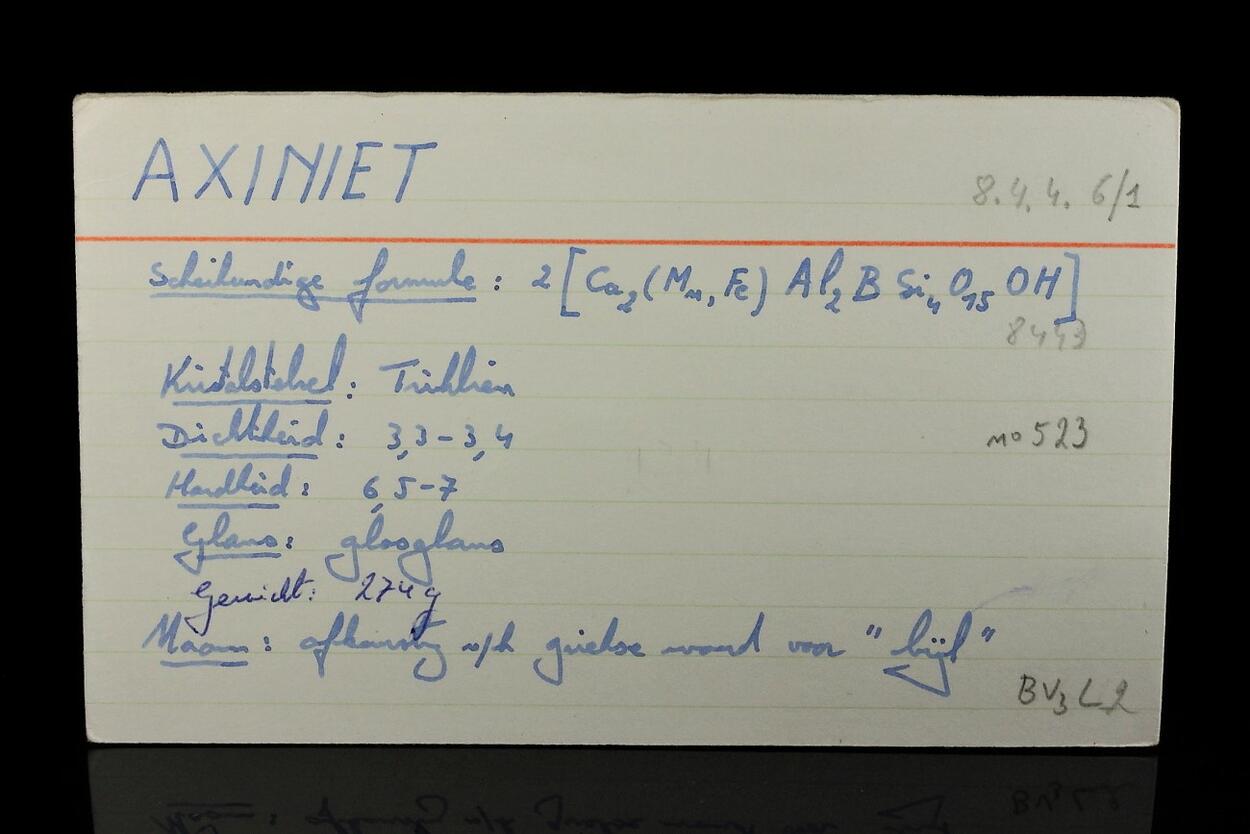 AXINIET
8.4.4. 6/1
Scheikundige formule : 2 [Ca₂(Mn, Fe) Al₂ B Si₄ O₁₅ OH]
8443
Kristalstelsel : Triklien
Dichtheid : 3,3-3,4
no 523
Hardheid : 6,5-7
Glans : glasglans
Gewicht : 274 g
Naam : afkomstig v/h griekse woord voor "bijl"
BV₃ L2